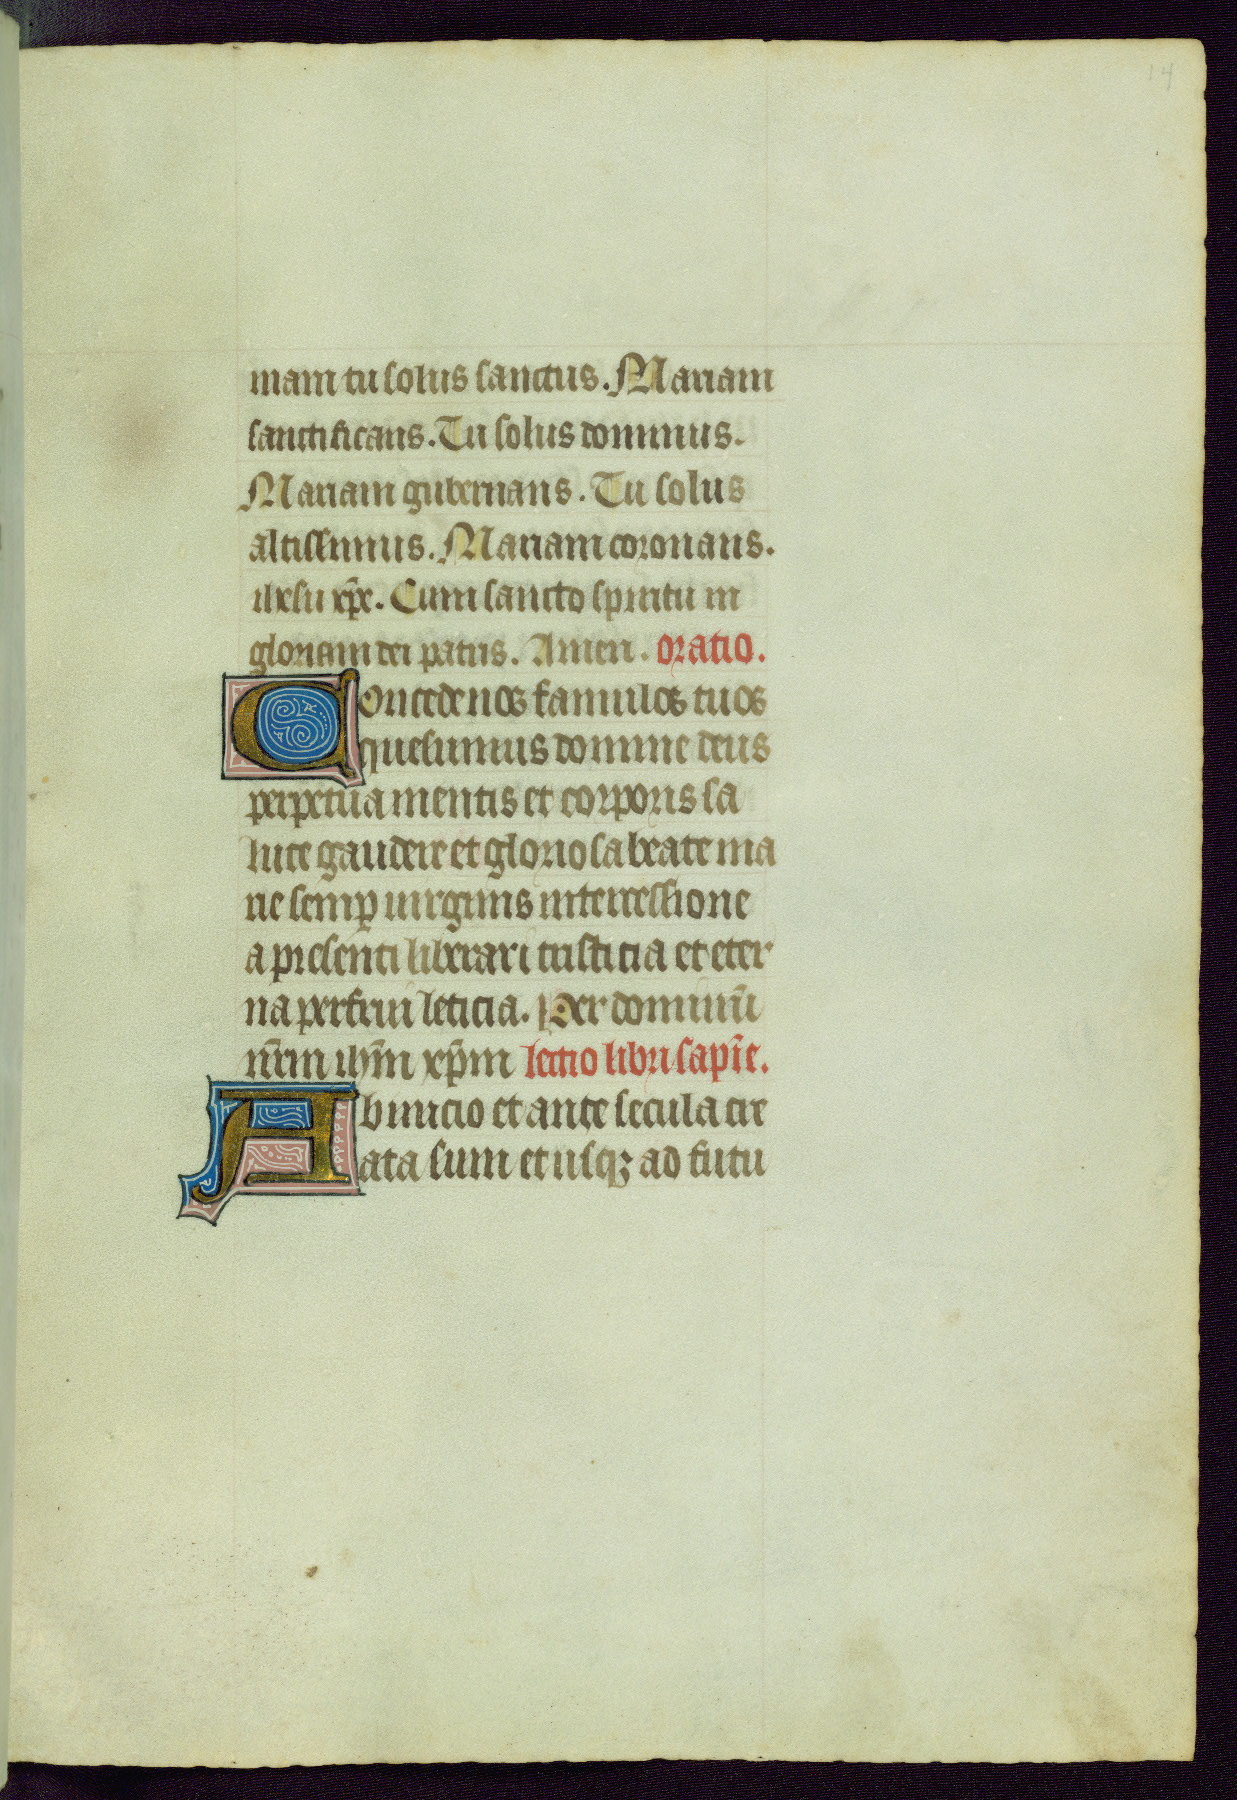 14
mam tu solus sanctus. Mariam
sanctificans. Tu solus dominus.
Mariam gubernans. Tu solus
altissimus. Mariam coronans.
ihesu xp̄e. Cum sancto spiritu in
gloriam dei patris. Amen. oratio.
Concede nos famulos tuos
quesumus domine deus
perpetua mentis et corporis sa
lute gaudere et gloriosa beate ma
rie semꝑ uirginis intercessione
a presenti liberari tristicia et eter
na perfrui leticia. Per dominū
nr̄m ihm̄ xp̄m lectio libri sapīe.
Ab inicio et ante secula cre
ata sum et usqꝫ ad futu